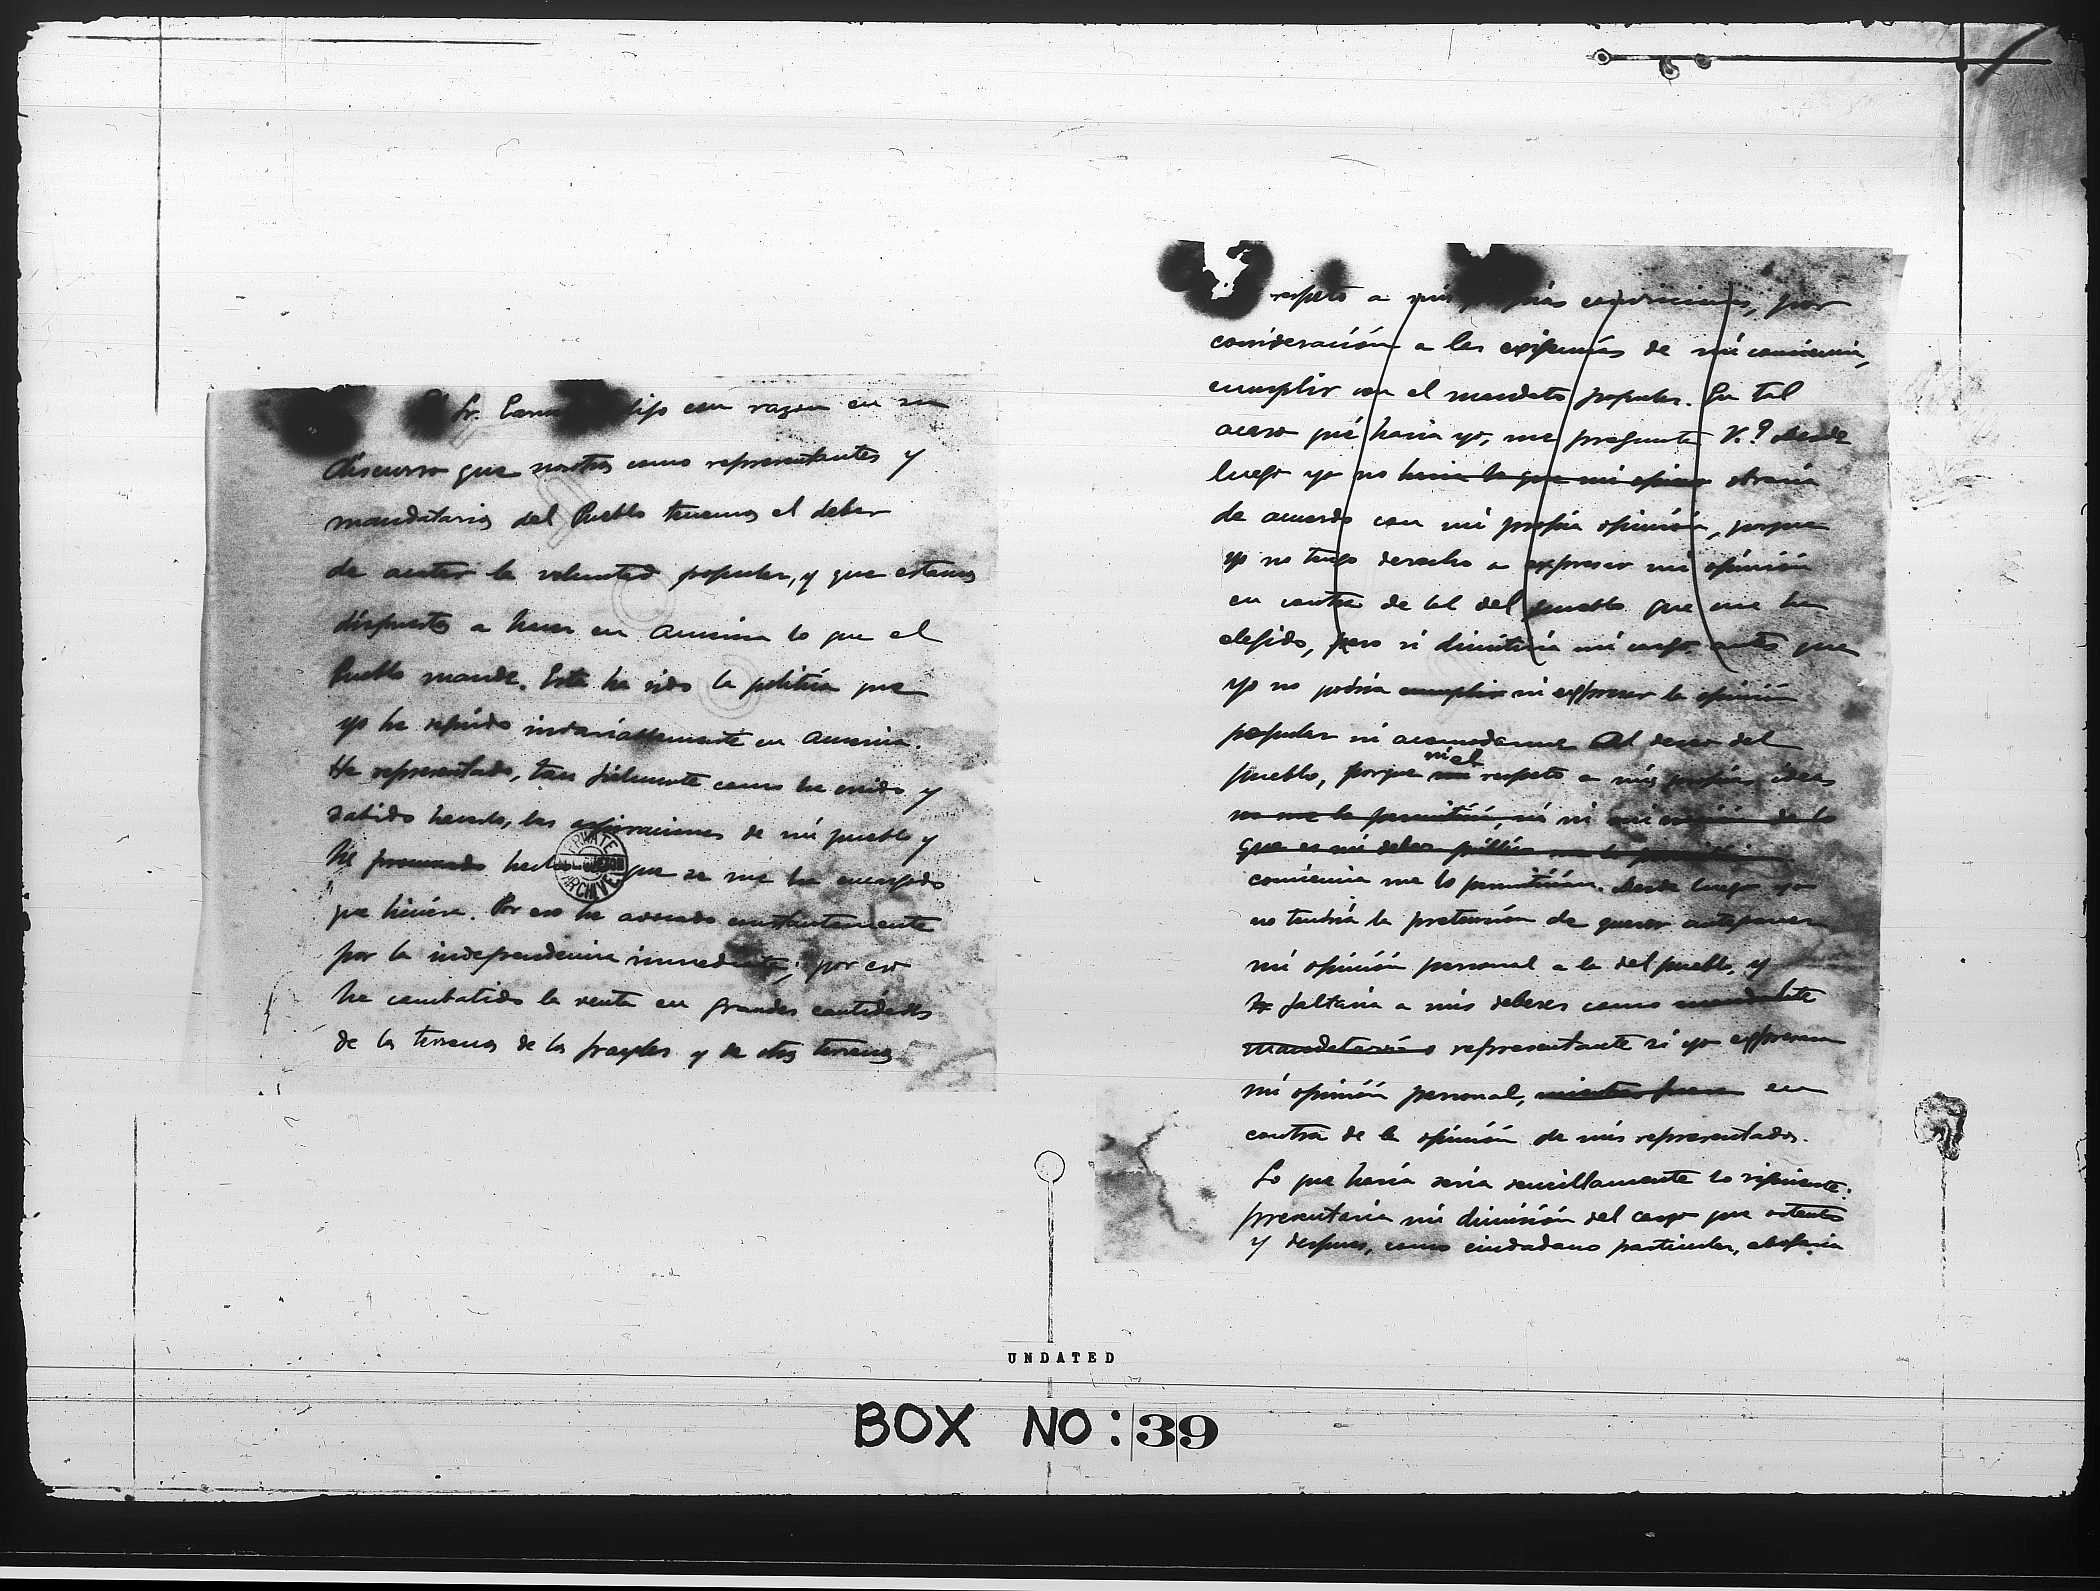 Sr. dijo con razon en su
discurso que nosotros como representantes y
mandatarios del Pueblo tenemos el deber
de acatar la voluntad popular, y que estamos
dispuestos a hacer en America lo que el
Pueblo mande. Esta ha sido la politica que
yo he seguido invariablemente en America.
He representado, tan fielmente como he creido y
sabido hacerlo, las aspiraciones de mi pueblo y
he procurado que se me ha encargado
que hiciera. Por eso he avocado constantemente
por la independencia inmediata; por eso
he combatido la venta en grandes cantidades
de los terrenos de los frayles y de otros terrenos
PRIVATE
ARCHIVE
respeto a mis convicciones, por
consideración a las exigencias de mi conciencia,
cumplir con el mandato popular. En tal
acaso qué haria yo, me pregunta V.? Desde
luego yo no haria lo que mi opinion obraria
de acuerdo con mi propia opinión, porque
yo no tengo derecho a expresar mi opinión
en contra de la del pueblo que me ha
elegido, pero si dimitiria mi cargo antes que
yo no podria cumplir ni expresar la opinión
popular ni acomodarme al deseo del
pueblo, porque ni el respeto a mis propias ideas
no me lo permitiria, ni ni mi de lo
que es mi deber
conciencia me lo permitirian. Desde luego yo
no tendria la pretensión de querer anteponer
mi opinión personal a la del pueblo, y
faltaria a mis deberes como
mandatario o representante si yo expresara
mi opinión personal, en
contra de la opinión de mis representados.
Lo que haria seria sencillamente lo siguiente:
presentaria mi dimisión del cargo que ostento
y despues, como ciudadano particular, abogaria
UNDATED
BOX NO: 39